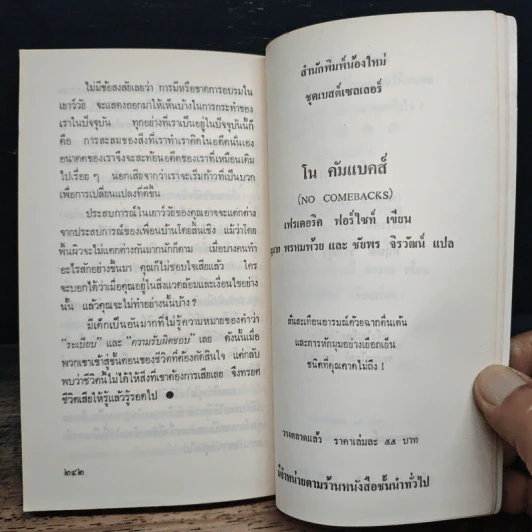 ไม่มีข้อสงสัยเลยว่า การมีหรือขาดการอบรมใน
เยาว์วัย จะแสดงออกมาให้เห็นบ้างในการกระทำของ
เราในปัจจุบัน ทุกอย่างที่เราเป็นอยู่ในปัจจุบันนี้ก็
คือ การสะสมของสิ่งที่เราทำเราคิดในอดีตนั่นเอง
อนาคตของเราจึงจะสะท้อนอดีตของเราที่เหมือนเดิม
ไปเรื่อย ๆ นอกเสียจากว่าเราจะเริ่มก้าวที่เป็นบวก
เพื่อการเปลี่ยนแปลงที่ดีขึ้น
ประสบการณ์ในเยาว์วัยของคุณอาจจะแตกต่าง
จากประสบการณ์ของเพื่อนบ้านโดยสิ้นเชิง แม้ว่าโดย
พื้นผิวจะไม่แตกต่างกันมากนักก็ตาม เมื่อบางคนทำ
อะไรสักอย่างขึ้นมา คุณก็ไม่ชอบใจเสียแล้ว ใคร
จะบอกได้ว่าเมื่อคุณอยู่ในสิ่งแวดล้อมและเงื่อนไขอย่าง
นั้น แล้วคุณจะไม่ทำอย่างนั้นบ้าง ?
มีเด็กเป็นอันมากที่ไม่รู้ความหมายของคำว่า
"ระเบียบ" และ "ความรับผิดชอบ" เลย ดังนั้นเมื่อ
พวกเขาเข้าสู่ขั้นตอนของชีวิตที่ต้องตัดสินใจ แต่กลับ
พบว่าชีวิตนี้ไม่ได้ให้สิ่งที่เขาต้องการเสียเลย จึงทรอด
ชีวิตเสียให้รู้แล้วรู้รอดไป ●
๒๔๒
สำนักพิมพ์น้องใหม่
ชุดเบสต์เซลเลอร์
โน คัมแบคส์
(NO COMEBACKS)
เฟรเดอริค ฟอร์ไซท์ เขียน
พรหมพ้วย และ ชัยพร จิรวัฒน์ แปล
สั่นสะเทือนอารมณ์ด้วยฉากตื่นเต้น
และการหักมุมอย่างเยือกเย็น
ชนิดที่คุณคาดไม่ถึง !
วางตลาดแล้ว ราคาเล่มละ ๕๕ บาท
มีจำหน่ายตามร้านหนังสือชั้นนำทั่วไป